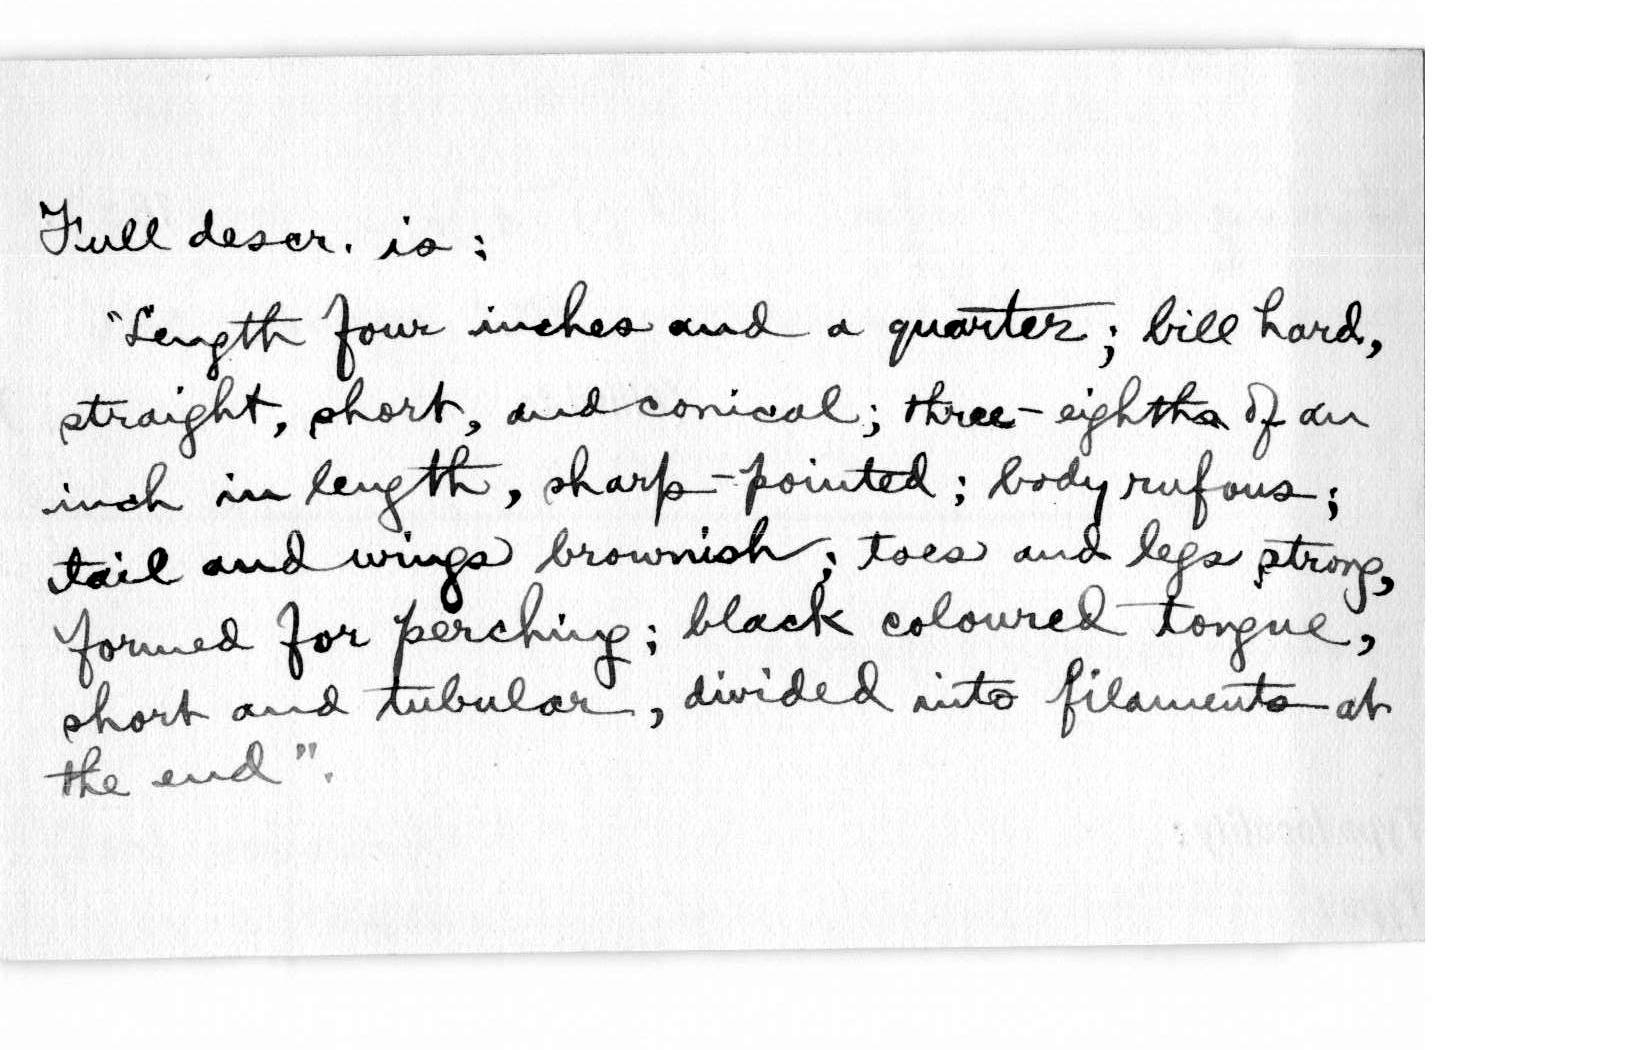 Full descr. is :
"Length four inches and a quarter; bill hard,
straight, short, and conical; three-eighths of an
inch in length, sharp-pointed; body rufous;
tail and wings brownish; toes and legs strong,
formed for perching; black coloured tongue,
short and tubular, divided into filaments at
the end".